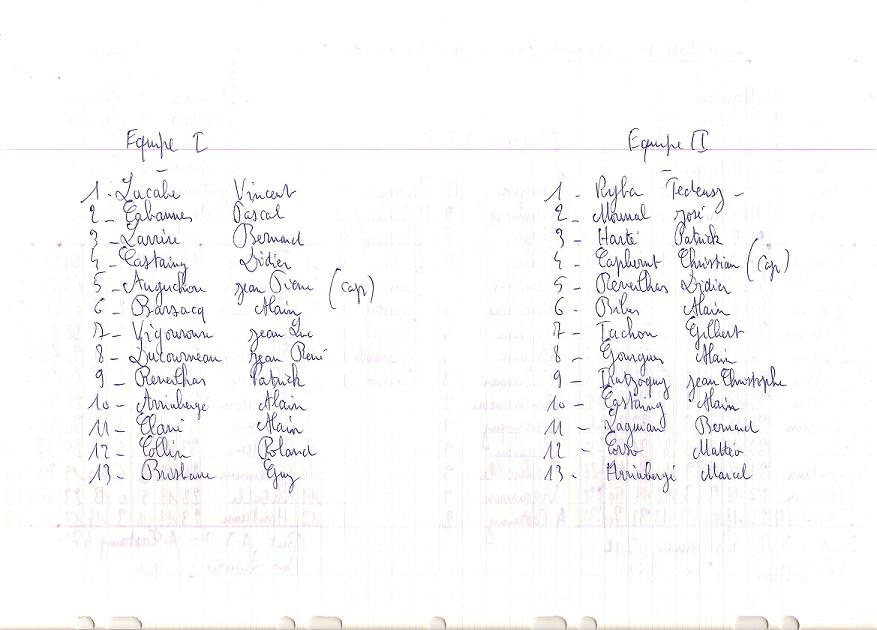 Equipe I
1 - Lacabe Vincent
2 - Cabannes Pascal
3 - Larrère Bernard
4 - Castaing Didier
5 - Auguchon Jean Pierre (Cap)
6 - Barsacq Alain
7 - Vigouroux Jean Luc
8 - Ducourneau Jean René
9 - Reveilhas Patrick
10 - Arrinbergé Alain
11 - Alain
12 - Collin Roland
13 - Brisbane Guy
Equipe II
1 - Ryba
2 - José
3 - Harté Patrick
4 - Christian (Cap)
5 - Reveilhas Didier
6 - Alain
7 - Tachon Gilbert
8 - Gourgues Alain
9 - Jean Christophe
10 - Castaing Alain
11 - Laguian Bernard
12 - Corso Mattéo
13 - Arrinbergé Marcel